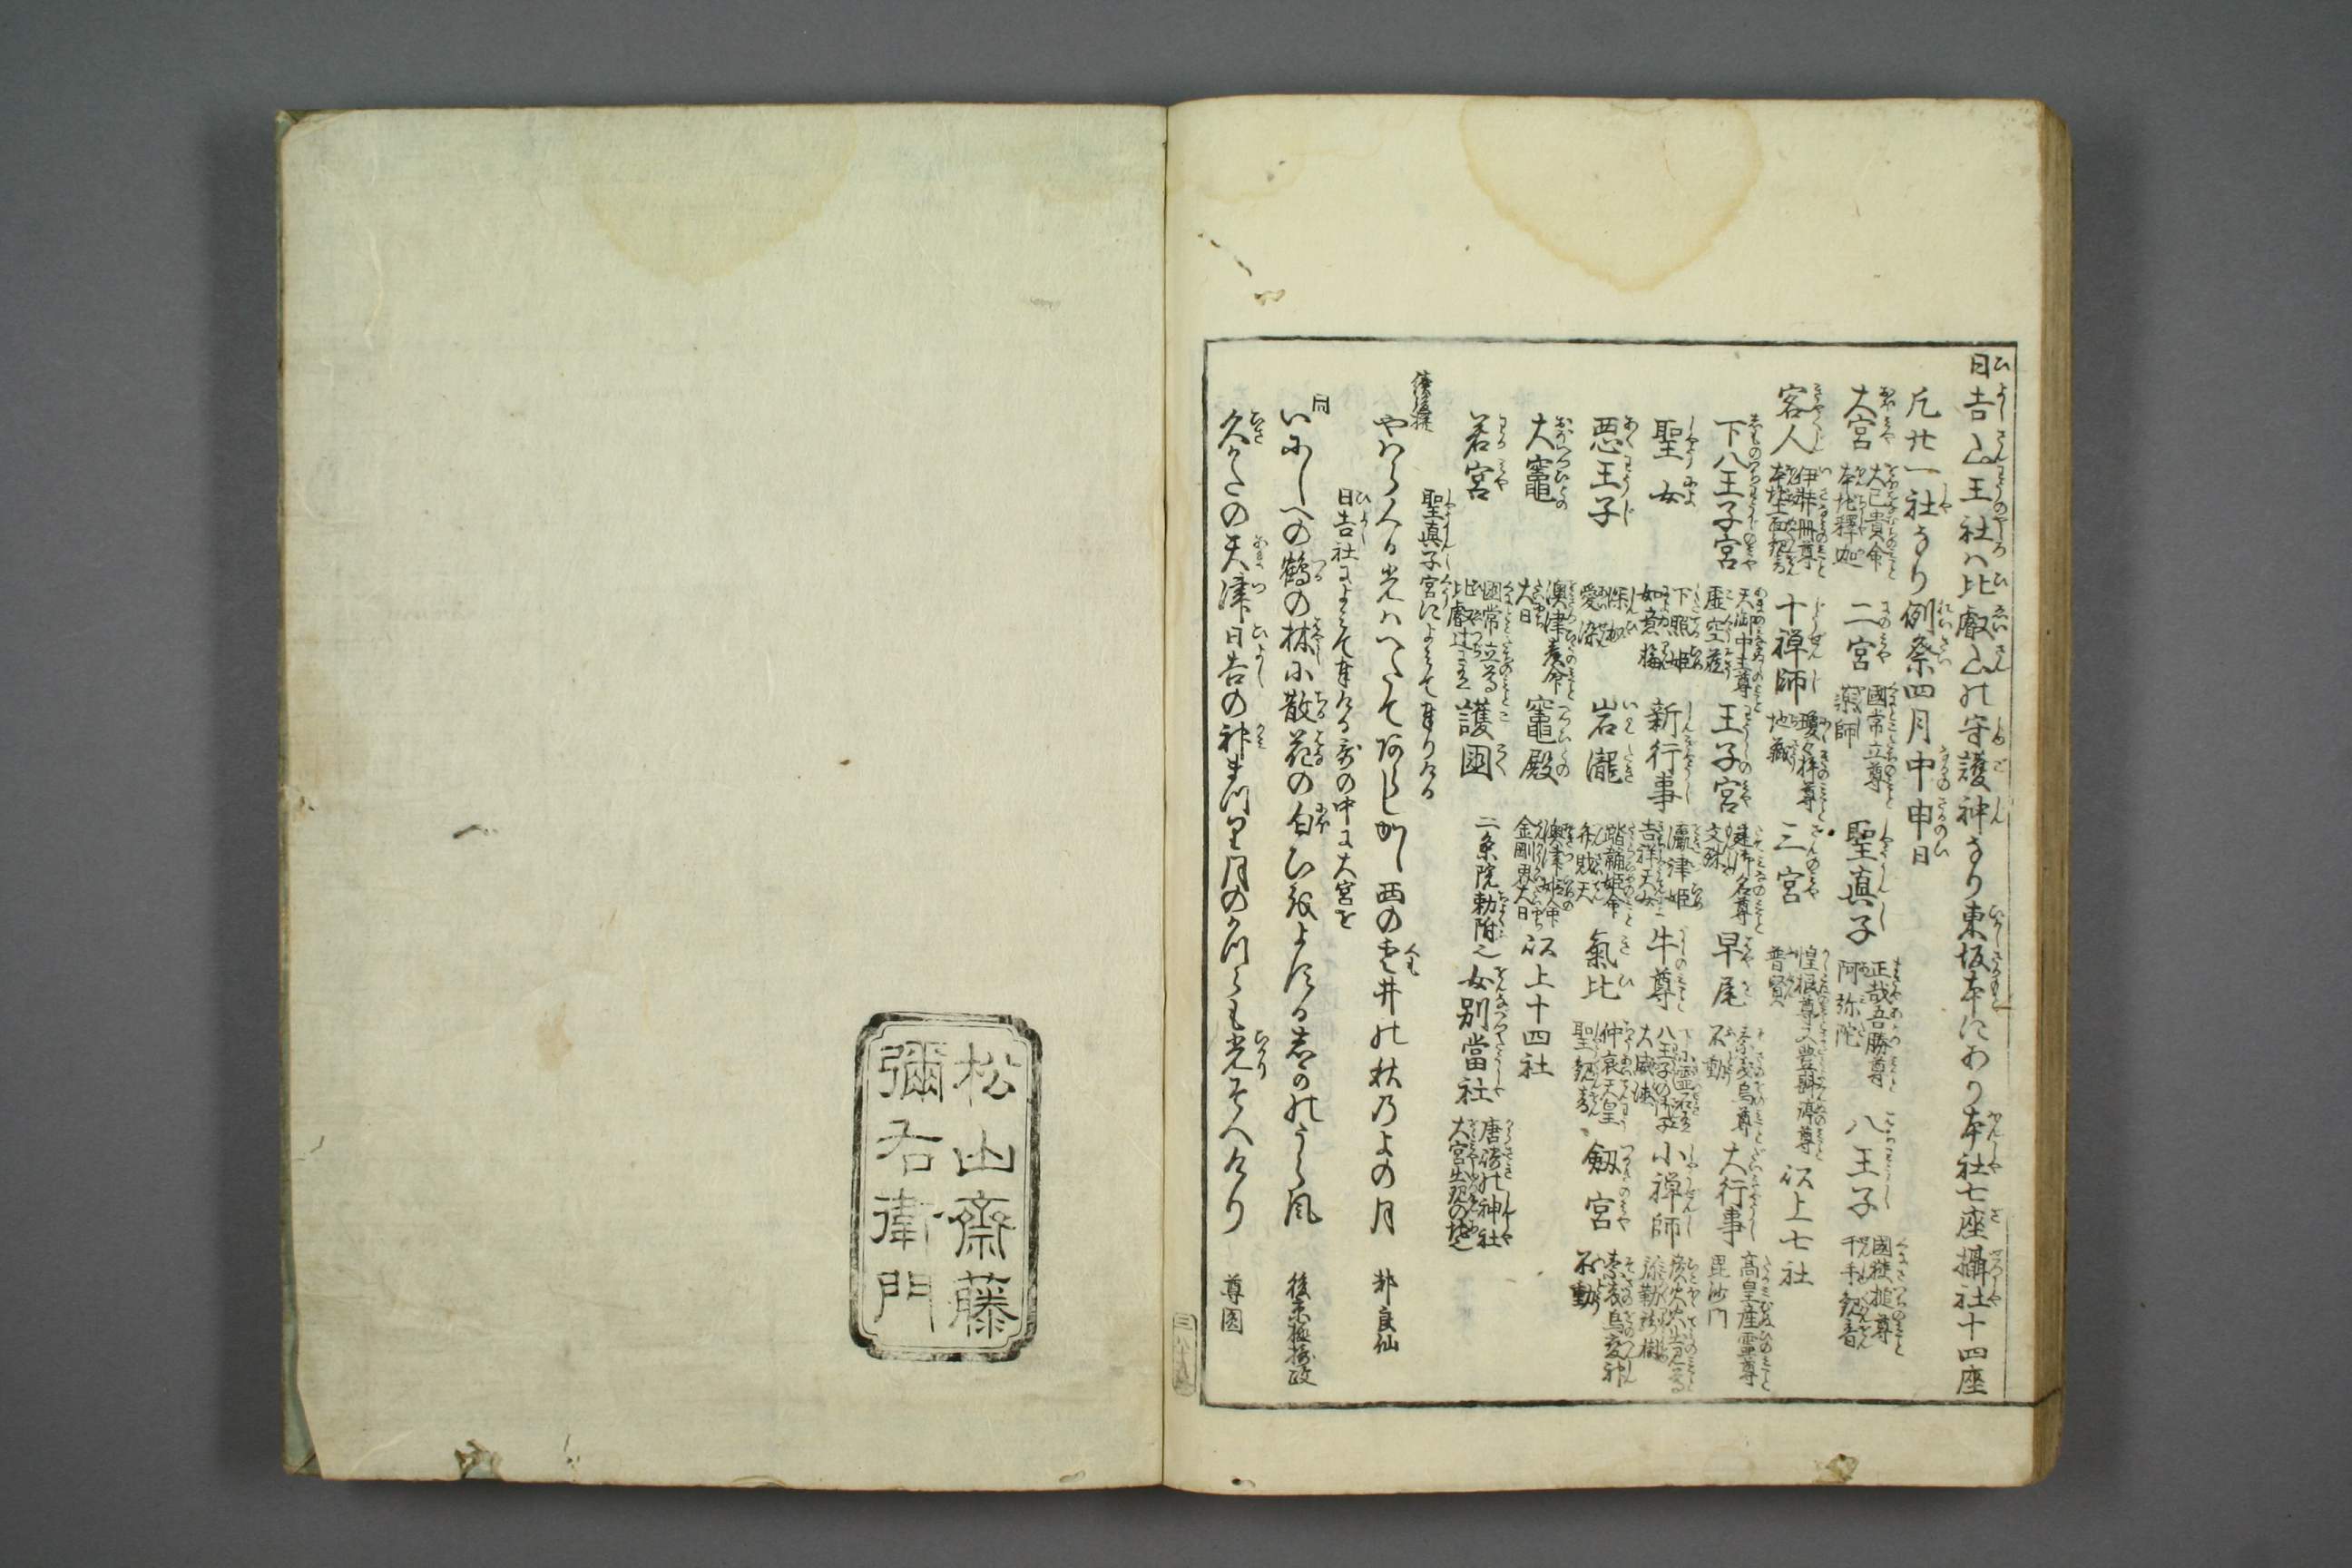 日吉山王社ハ比叡山の守護神なり東坂本にあり本社七座攝社十四座
凡廿一社なり例祭四月中申日
大宮 大已貴命 本地釋迦 二宮 國常立尊 藥師 聖真子 正哉吾勝尊 阿弥陀 八王子 國狭槌尊 千手観音
客人 伊弉冊尊 本地十一面観音 十禅師 瓊々杵尊 地蔵 三宮 惶根尊 普賢 以上七社
下八王子宮 天御中主尊 虚空蔵 王子宮 建御名尊 文殊 早尾 素戔烏尊 不動 大行事 高皇産霊尊 毘沙門
聖女 下照姫 如意輪 新行事 瀛津姫 吉祥天女 牛尊 大威徳 小禅師 彦火々出見尊
悪王子 愛染 岩瀧 弁財天 氣比 仲哀天皇 聖観音 劔宮 素戔烏変神 不動
大竈 澳津彦命 大日 竈殿 奥津姫命 金剛界大日 以上十四社
若宮 國常立尊 比叡辻ニ在 護國 二条院勅附之 女別當社 唐崎の神社 大宮出現の地也
續後撰 聖真子宮によみて奉りける
やはらくる光ハへたてあらしかし西の雲井の秋乃よの月 郝良仙
同 日吉社によみて奉ける哥の中に大宮を
いにしへの鶴の林に散花の匂ひをよする志のうら風 後京極摂政
久かたの天津日吉の神まつり月のかつらも光そへけり 尊圓
松山齋藤
彌右衛門